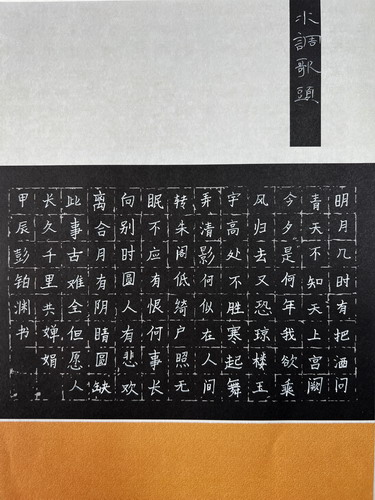 水調歌頭
明月几时有把酒问
青天不知天上宫阙
今夕是何年我欲乘
风归去又恐琼楼玉
宇高处不胜寒起舞
弄清影何似在人间
转朱阁低绮户照无
眠不应有恨何事长
向别时圆人有悲欢
离合月有阴晴圆缺
此事古难全但愿人
长久千里共婵娟
甲辰彭铂渊书